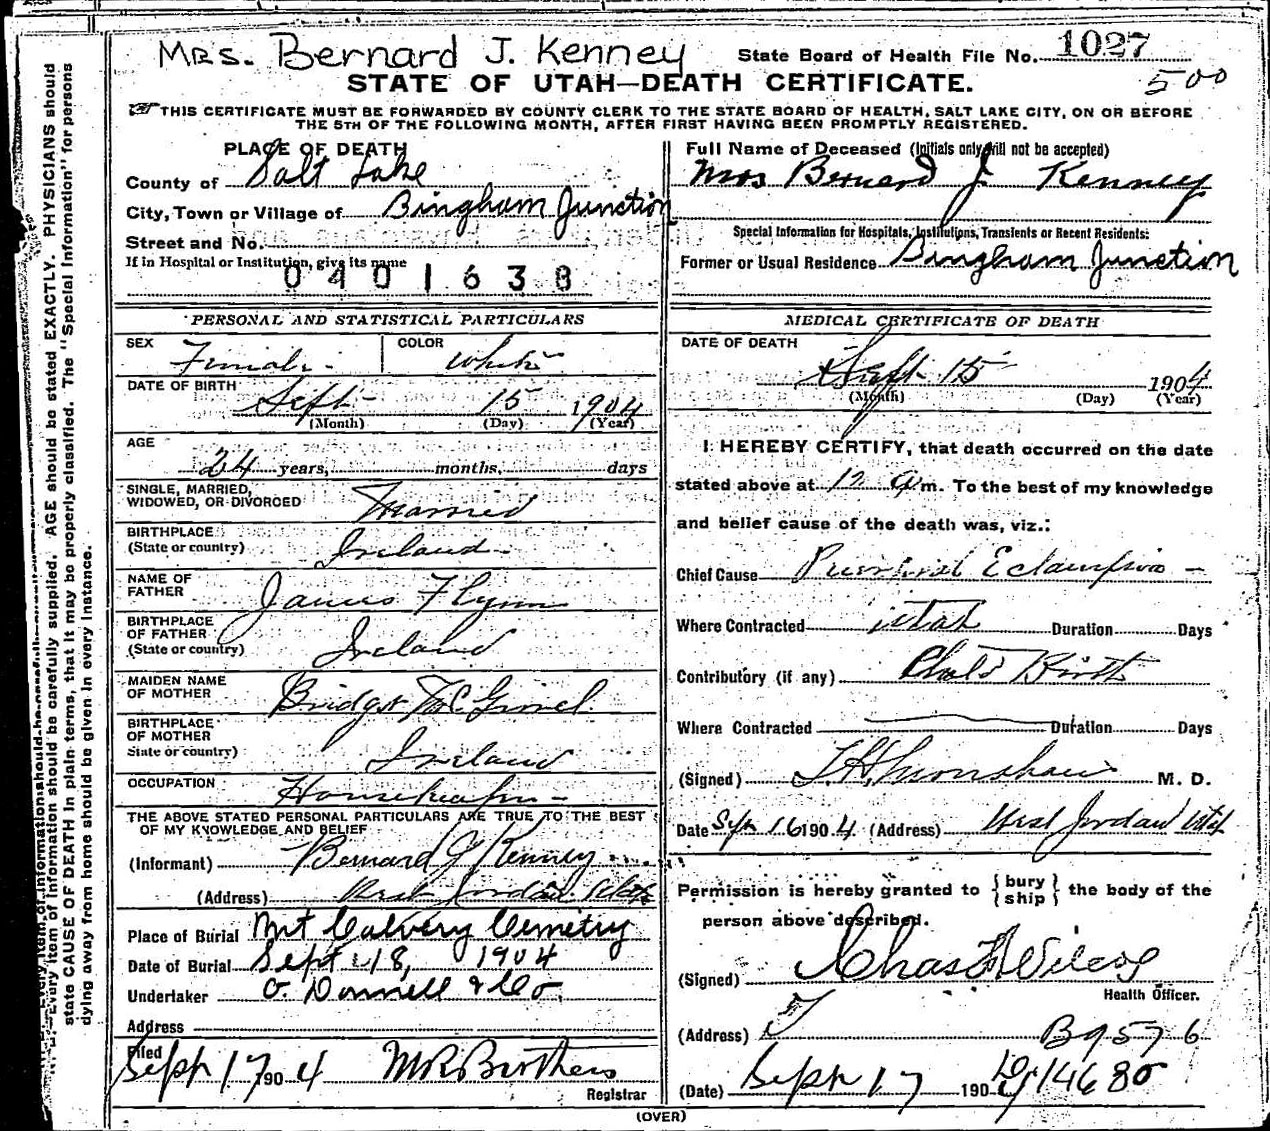 Mrs. Bernard J. Kenney
State Board of Health File No. 1027
500
STATE OF UTAH—DEATH CERTIFICATE.
THIS CERTIFICATE MUST BE FORWARDED BY COUNTY CLERK TO THE STATE BOARD OF HEALTH, SALT LAKE CITY, ON OR BEFORE
THE 5TH OF THE FOLLOWING MONTH, AFTER FIRST HAVING BEEN PROMPTLY REGISTERED.
PLACE OF DEATH
County of Salt Lake
City, Town or Village of Bingham Junction
Street and No.
If in Hospital or Institution, give its name
0401638
Full Name of Deceased (Initials only will not be accepted)
Mrs Bernard J. Kenney
Special Information for Hospitals, Institutions, Transients or Recent Residents:
Former or Usual Residence Bingham Junction
PERSONAL AND STATISTICAL PARTICULARS
SEX Female
COLOR White
DATE OF BIRTH
Sept 15 1904
(Month) (Day) (Year)
AGE
24 years, months, days
SINGLE, MARRIED,
WIDOWED, OR DIVORCED Married
BIRTHPLACE
(State or country) Ireland
NAME OF
FATHER James Flynn
BIRTHPLACE
OF FATHER
(State or country) Ireland
MAIDEN NAME
OF MOTHER Bridget
BIRTHPLACE
OF MOTHER
State or country) Ireland
OCCUPATION Housekeeper
THE ABOVE STATED PERSONAL PARTICULARS ARE TRUE TO THE BEST
OF MY KNOWLEDGE AND BELIEF
(Informant) Bernard J Kenney
(Address) West Jordan Utah
Place of Burial Mt Calvery Cemetry
Date of Burial Sept 18, 1904
Undertaker O. Donnell & Co.
Address
Filed Sept 17 1904
Registrar
MEDICAL CERTIFICATE OF DEATH
DATE OF DEATH
Sept 15 1904
(Month) (Day) (Year)
I HEREBY CERTIFY, that death occurred on the date
stated above at 12 a m. To the best of my knowledge
and belief cause of the death was, viz.:
Chief Cause Puerperal Eclampsia
Where Contracted Utah Duration Days
Contributory (if any) Child Birth
Where Contracted Duration Days
(Signed) M. D.
Date Sep 16 1904 (Address) West Jordan Utah
Permission is hereby granted to {bury ship} the body of the
person above described.
(Signed) Chas
Health Officer.
(Address) B9576
(Date) Sept 17 190 14680
(OVER)
Every item of information should be carefully supplied. AGE should be stated EXACTLY. PHYSICIANS should
state CAUSE OF DEATH in plain terms, that it may be properly classified. The "Special Information" for persons
dying away from home should be given in every instance.